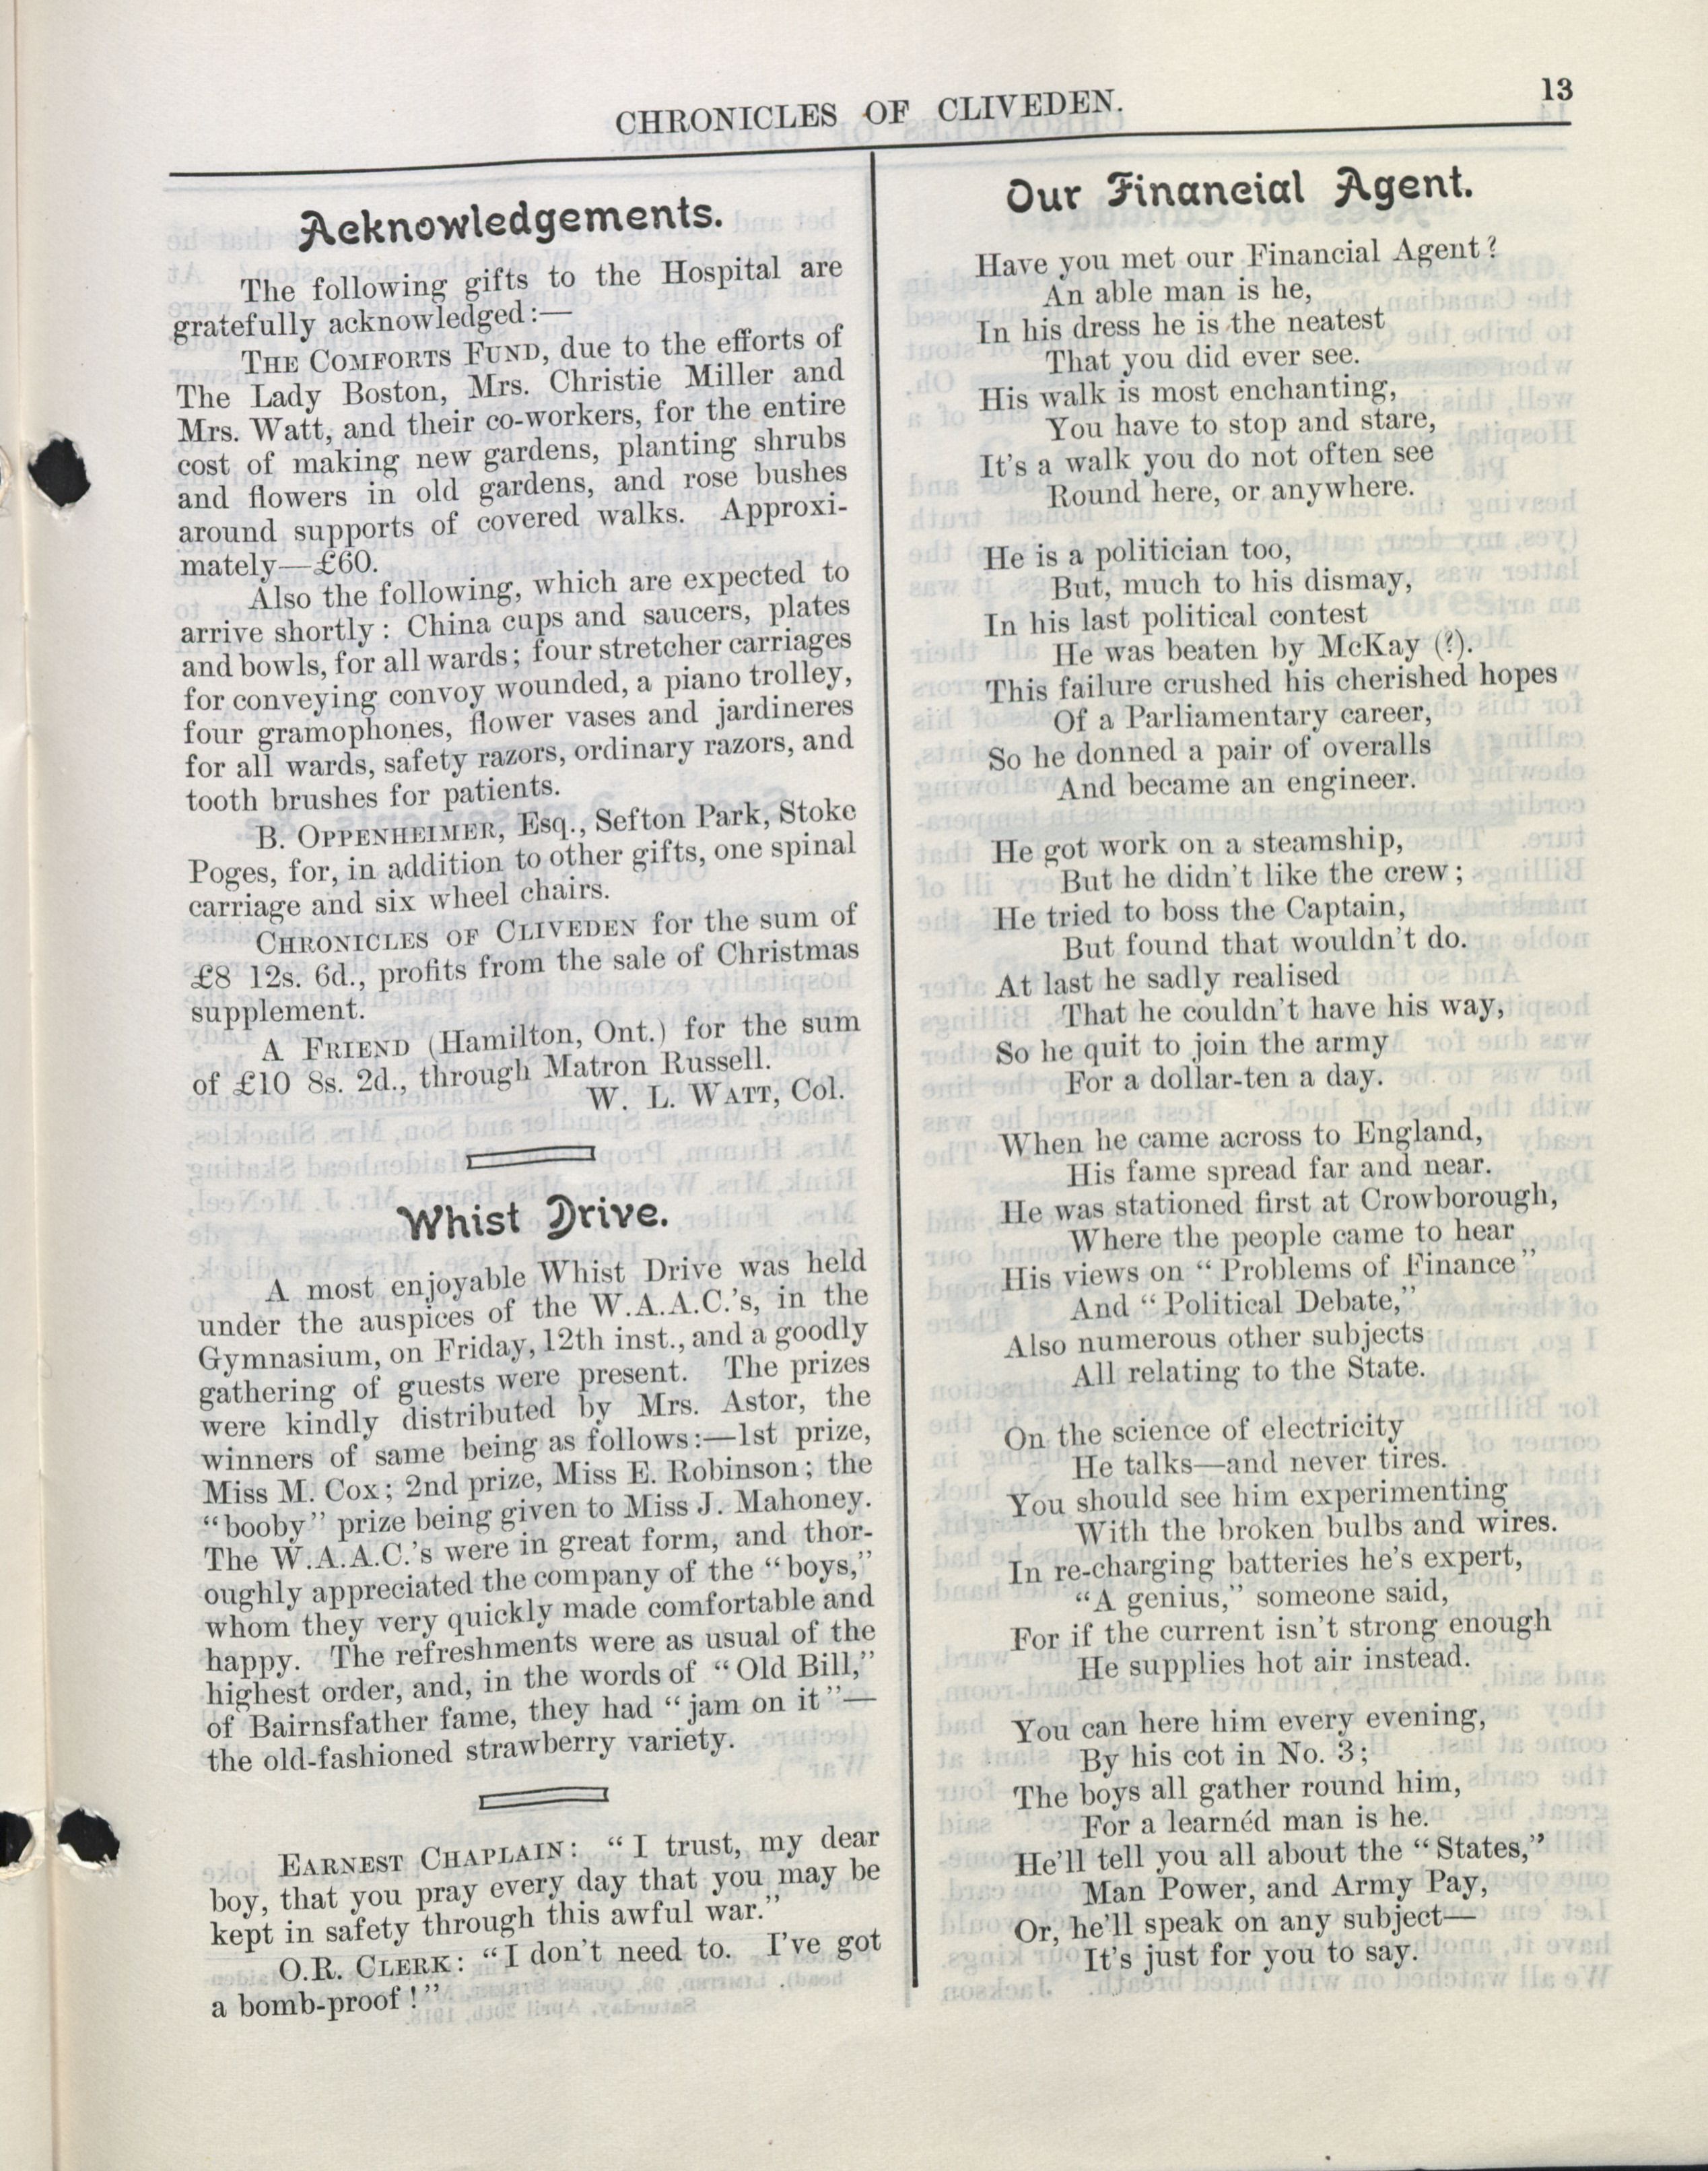 CHRONICLES OF CLIVEDEN.
13
Acknowledgements.
The following gifts to the Hospital are
gratefully acknowledged:—
THE COMFORTS FUND, due to the efforts of
The Lady Boston, Mrs. Christie Miller and
Mrs. Watt, and their co-workers, for the entire
cost of making new gardens, planting shrubs
and flowers in old gardens, and rose bushes
around supports of covered walks. Approxi-
mately—£60.
Also the following, which are expected to
arrive shortly: China cups and saucers, plates
and bowls, for all wards; four stretcher carriages
for conveying convoy wounded, a piano trolley,
four gramophones, flower vases and jardineres
for all wards, safety razors, ordinary razors, and
tooth brushes for patients.
B. OPPENHEIMER, Esq., Sefton Park, Stoke
Poges, for, in addition to other gifts, one spinal
carriage and six wheel chairs.
CHRONICLES OF CLIVEDEN for the sum of
£8 12s. 6d., profits from the sale of Christmas
supplement.
A FRIEND (Hamilton, Ont.) for the sum
of £10 8s. 2d., through Matron Russell.
W. L. WATT, Col.
Whist Drive.
A most enjoyable Whist Drive was held
under the auspices of the W.A.A.C.'s, in the
Gymnasium, on Friday, 12th inst., and a goodly
gathering of guests were present. The prizes
were kindly distributed by Mrs. Astor, the
winners of same being as follows:—1st prize,
Miss M. Cox; 2nd prize, Miss E. Robinson; the
"booby" prize being given to Miss J. Mahoney.
The W.A.A.C.'s were in great form, and thor-
oughly appreciated the company of the "boys,"
whom they very quickly made comfortable and
happy. The refreshments were as usual of the
highest order, and, in the words of "Old Bill,"
of Bairnsfather fame, they had "jam on it"—
the old-fashioned strawberry variety.
EARNEST CHAPLAIN: "I trust, my dear
boy, that you pray every day that you may be
kept in safety through this awful war."
O.R. CLERK: "I don't need to. I've got
a bomb-proof!"
Our Financial Agent.
Have you met our Financial Agent?
An able man is he,
In his dress he is the neatest
That you did ever see.
His walk is most enchanting,
You have to stop and stare,
It's a walk you do not often see
Round here, or anywhere.
He is a politician too,
But, much to his dismay,
In his last political contest
He was beaten by McKay (?).
This failure crushed his cherished hopes
Of a Parliamentary career,
So he donned a pair of overalls
And became an engineer.
He got work on a steamship,
But he didn't like the crew;
He tried to boss the Captain,
But found that wouldn't do.
At last he sadly realised
That he couldn't have his way,
So he quit to join the army
For a dollar-ten a day.
When he came across to England,
His fame spread far and near.
He was stationed first at Crowborough,
Where the people came to hear
His views on "Problems of Finance"
And "Political Debate,"
Also numerous other subjects
All relating to the State.
On the science of electricity
He talks—and never tires.
You should see him experimenting
With the broken bulbs and wires.
In re-charging batteries he's expert,
"A genius," someone said,
For if the current isn't strong enough
He supplies hot air instead.
You can here him every evening,
By his cot in No. 3;
The boys all gather round him,
For a learnéd man is he.
He'll tell you all about the "States,"
Man Power, and Army Pay,
Or, he'll speak on any subject—
It's just for you to say.